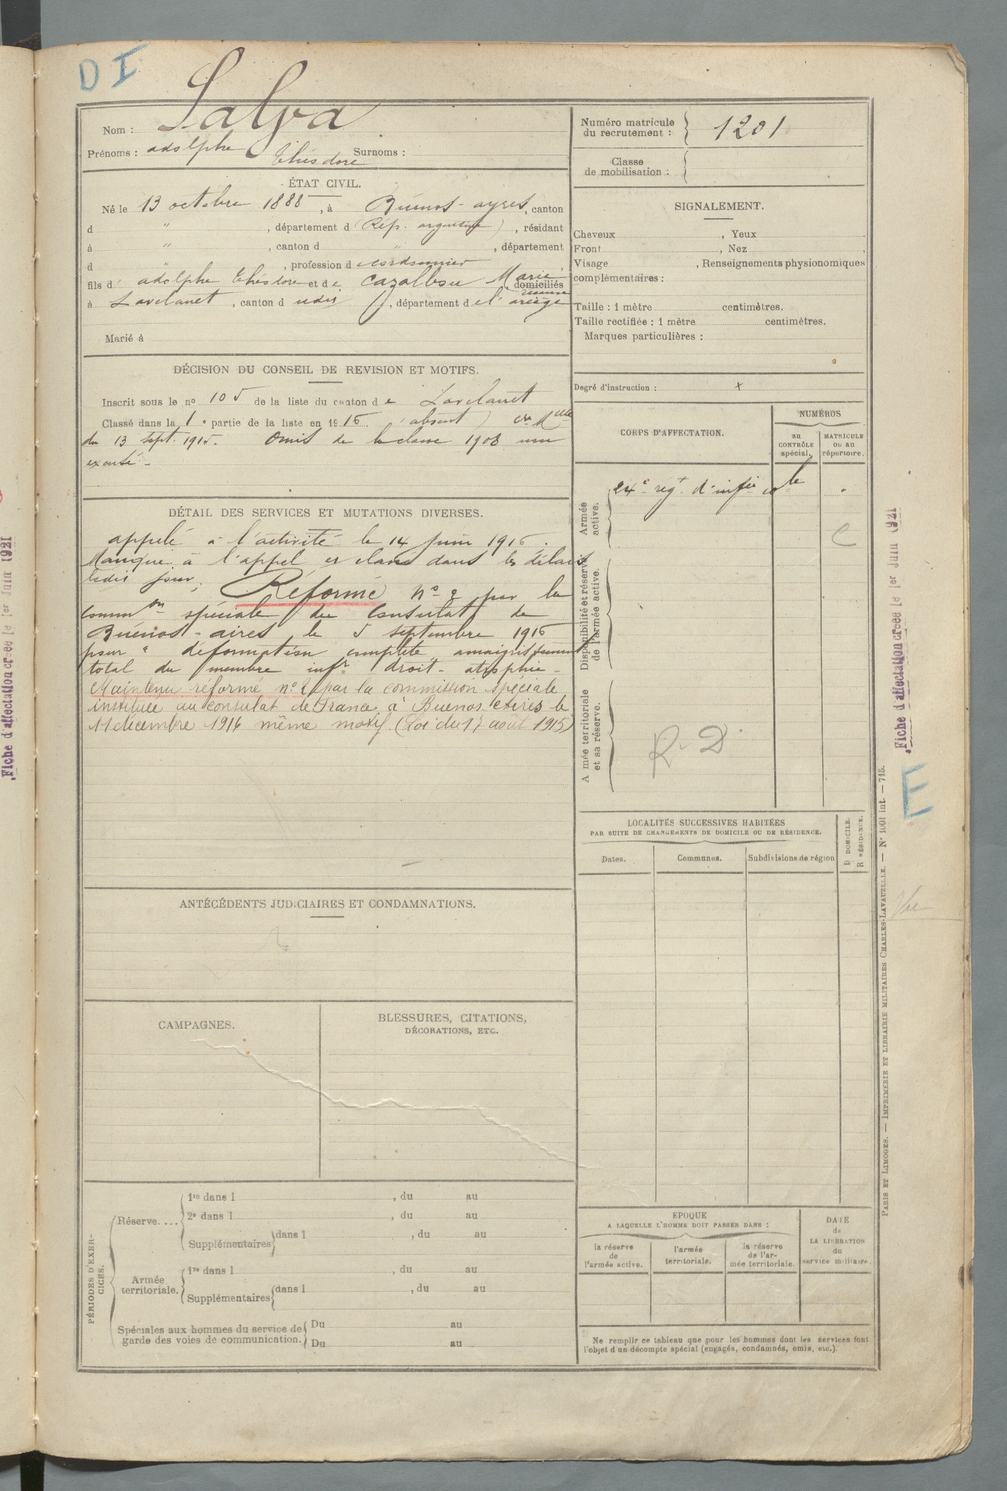 D I
Nom : Salva
Prénoms : adolphe Théodore Surnoms :
Numéro matricule du recrutement : 1201
Classe de mobilisation :
ÉTAT CIVIL.
Né le 13 octobre 1888, à Buénos-ayres, canton
d " , département d (Rép. argentine), résidant
à " , canton d " , département
d , profession d cordonnier
fils d' adolphe Théodore et de Cazalbou Marie domiciliés
à Lavelanet, canton d udis, département de l'ariège
Marié à
SIGNALEMENT.
Cheveux , Yeux
Front , Nez
Visage , Renseignements physionomiques
complémentaires :
Taille : 1 mètre centimètres.
Taille rectifiée : 1 mètre centimètres.
Marques particulières :
Degré d'instruction : x
DÉCISION DU CONSEIL DE REVISION ET MOTIFS.
Inscrit sous le nº 105 de la liste du canton de Lavelanet
Classé dans la 1 e partie de la liste en 1915 (absent)
du 13 sept. 1915. Omis de la classe 1908 non
excusé.
DÉTAIL DES SERVICES ET MUTATIONS DIVERSES.
appelé à l'activité le 14 juin 1916.
Manqué à l'appel es classé dans les délais
ledis jour. Réformé nº 2 par la
common spéciale du Consulat de
Buénos-aires le 5 septembre 1916
pour " déformation complète amaigrissement
total du membre infr droit - atrophie -
Maintenu réformé nº 2 par la commission spéciale
instituée au consulat de France à Buenos Aires le
11 décembre 1916 même motif (Loi du 17 août 1915)
CORPS D'AFFECTATION.
NUMÉROS
AU CONTRÔLE spécial.
MATRICULE OU AU répertoire.
Armée active.
24e regt d'infie cole
C
Disponibilité et réserve de l'armée active.
Armée territoriale et sa réserve.
R. D
LOCALITÉS SUCCESSIVES HABITÉES
PAR SUITE DE CHANGEMENTS DE DOMICILE OU DE RÉSIDENCE.
Dates.
Communes.
Subdivisions de région
D DOMICILE.
R RÉSIDENCE.
ANTÉCÉDENTS JUDICIAIRES ET CONDAMNATIONS.
CAMPAGNES.
BLESSURES, CITATIONS,
DÉCORATIONS, ETC.
PÉRIODES D'EXERCICES.
Réserve....
1re dans l , du au
2e dans l , du au
Supplémentaires dans l , du au
Armée territoriale.
1re dans l , du au
Supplémentaires dans l , du au
Spéciales aux hommes du service de Du au
garde des voies de communication. Du au
EPOQUE
A LAQUELLE L'HOMME DOIT PASSER DANS :
la réserve de l'armée active.
l'armée territoriale.
la réserve de l'armée territoriale.
DATE de LA LIBÉRATION du service militaire.
Ne remplir ce tableau que pour les hommes dont les services font
l'objet d'un décompte spécial (engagés, condamnés, omis, etc.).
Fiche d'affectation créée le 1er Juin 1921
Fiche d'affectation créée le 1er Juin 1921
E
PARIS ET LIMOGES. — IMPRIMERIE ET LIBRAIRIE MILITAIRES CHARLES-LAVAUZELLE. — Nº 1001 int. — 715.